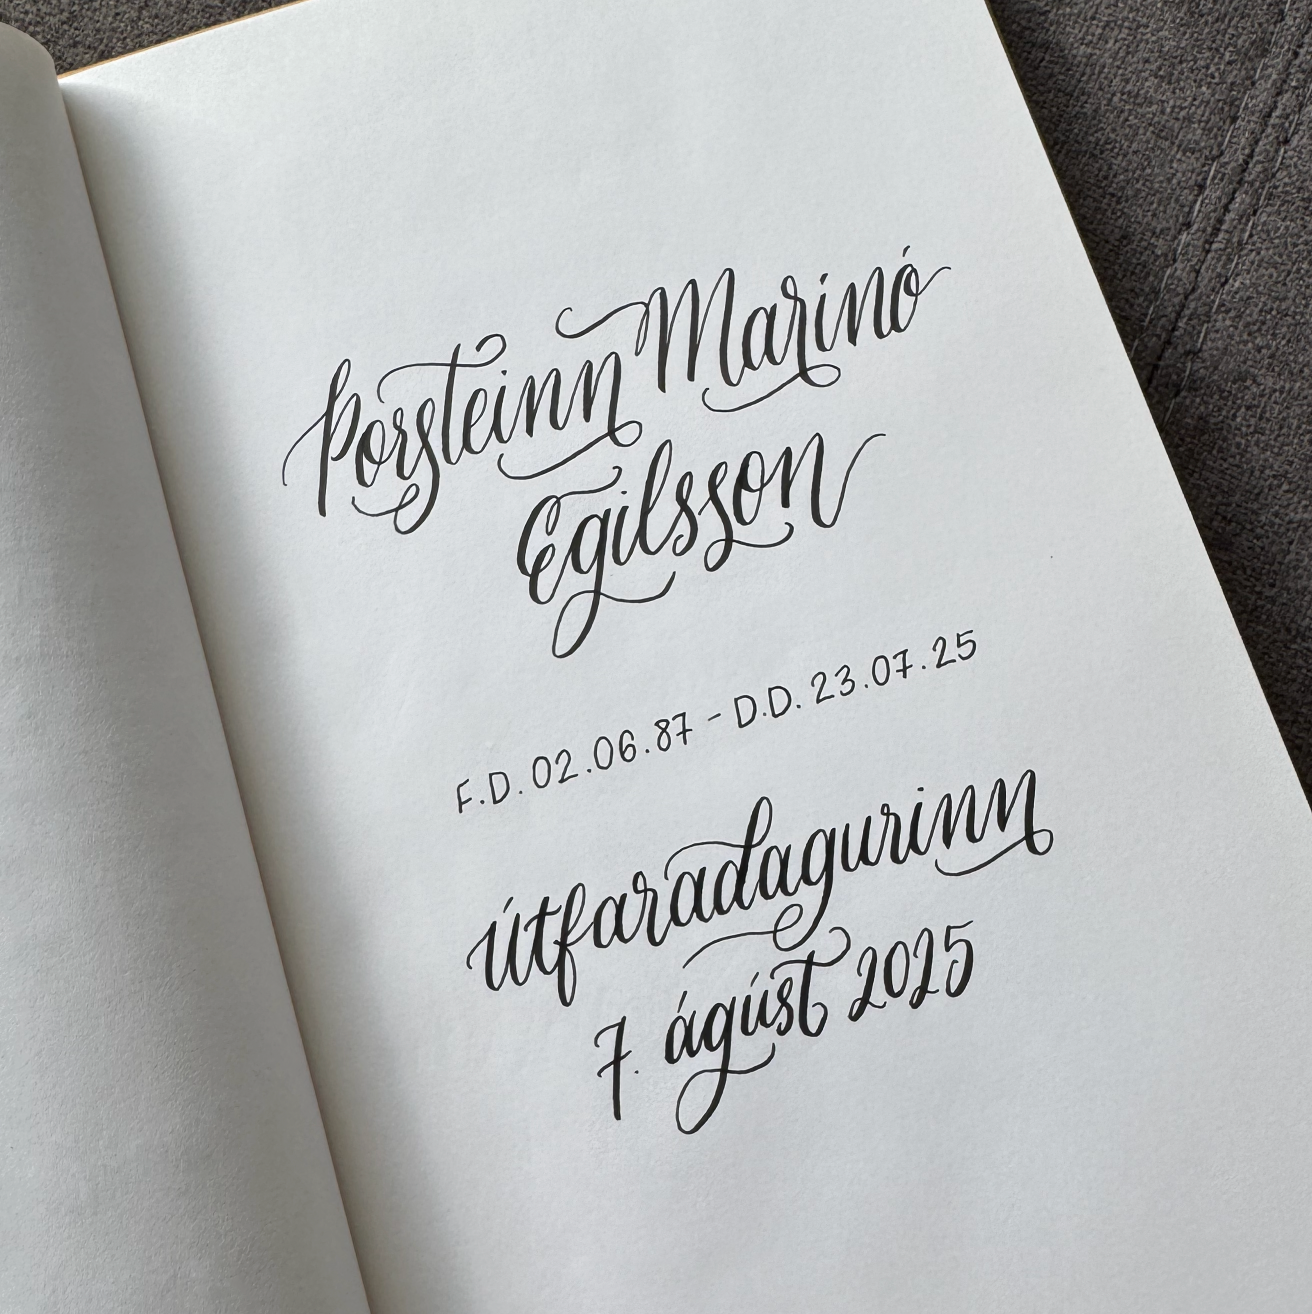 Þorsteinn Marinó
Egilsson
F.D. 02.06.87 - D.D. 23.07.25
útfaradagurinn
7. ágúst 2025